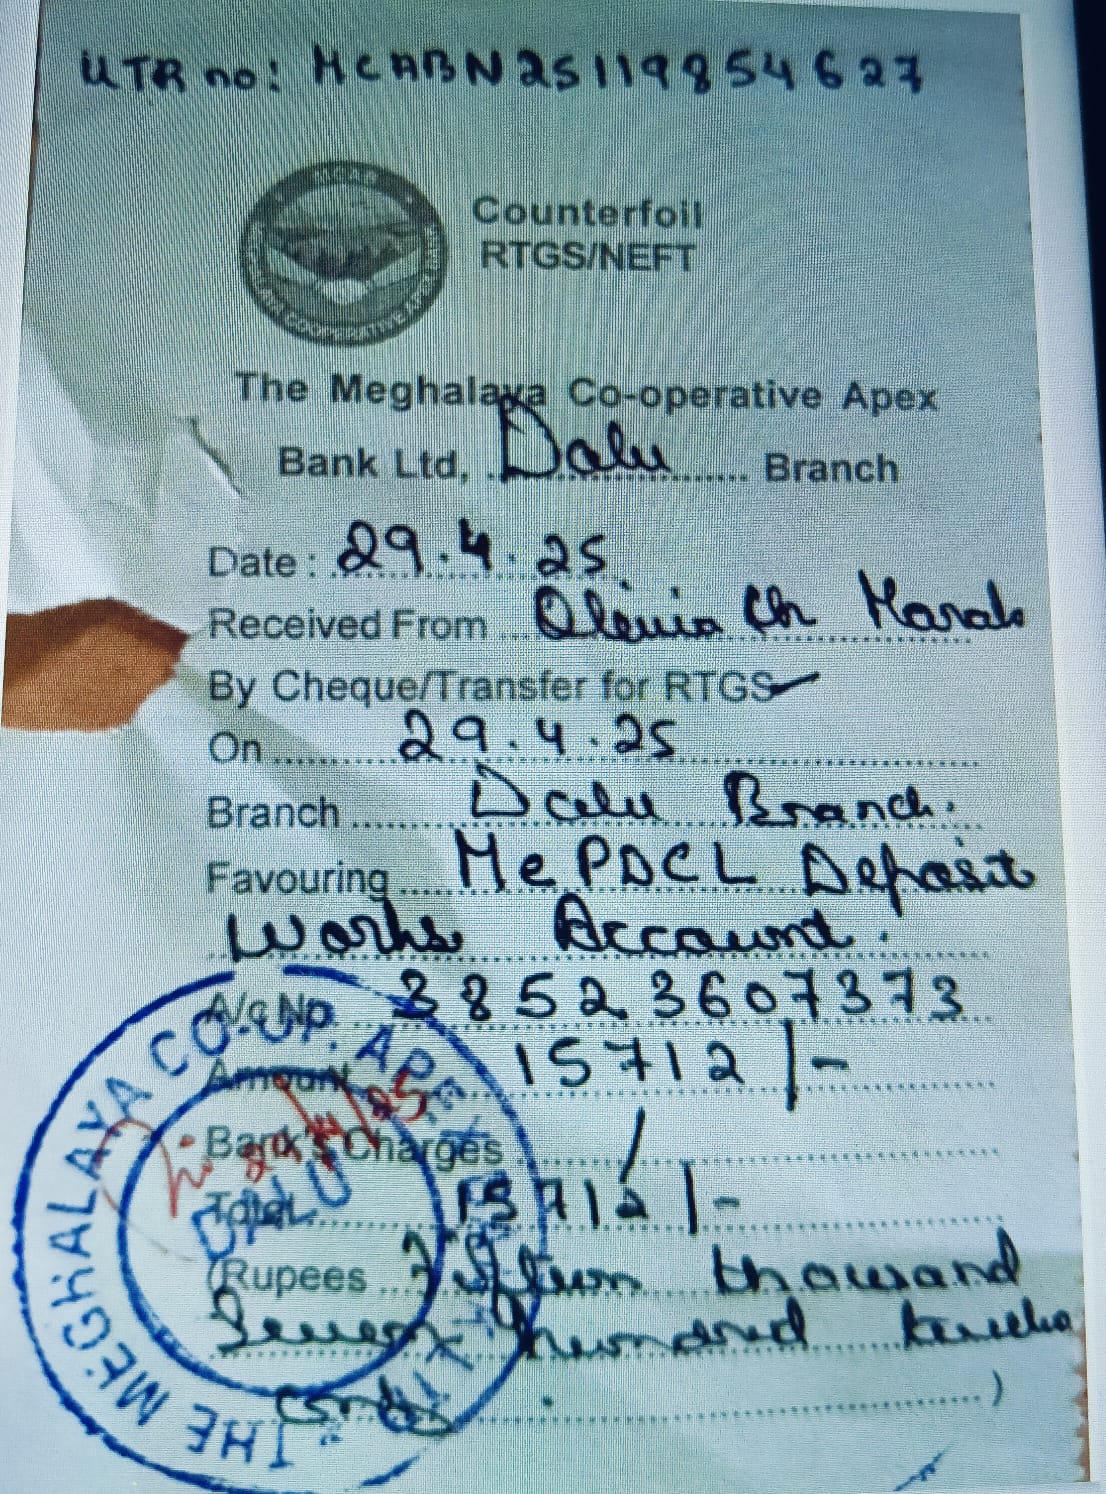 UTR no: MCABN25119854627
MCAB
MEGHALAYA COOPERATIVE APEX BANK
Counterfoil
RTGS/NEFT
The Meghalaya Co-operative Apex
Bank Ltd, Dalu Branch
Date : 29.4.25
Received From Olenia Ch Marak
By Cheque/Transfer for RTGS
On 29.4.25
Branch Dalu Branch.
Favouring MePDCL Deposit
Works Account.
A/c No. 38523607373
Amount 15712/-
Bank's Charges /
Total 15712/-
(Rupees Fifteen thousand
Seven hundred twelve
only. )
THE MEGHALAYA CO-OP. APEX
DALU